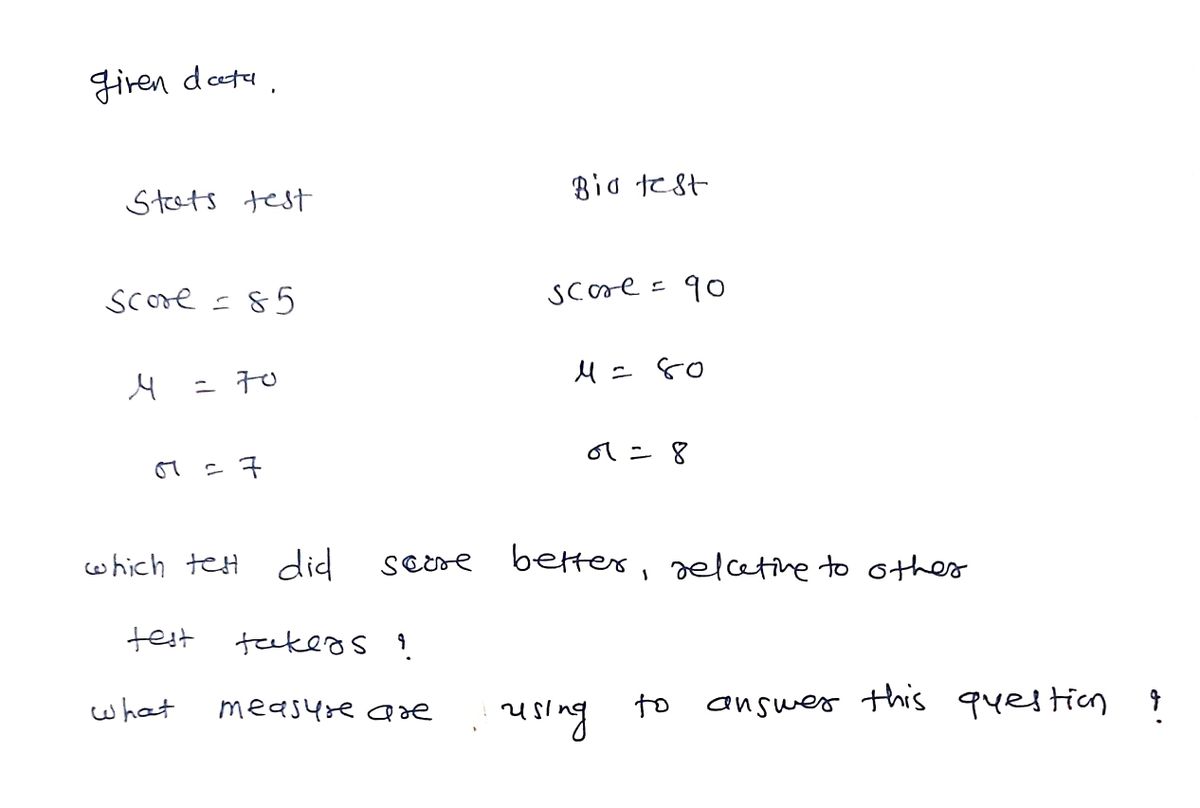 given data.
Stats test
Bio test
score = 85
score = 90
μ = 70
μ = 80
σ = 7
σ = 8
which test did score better, relative to other
test takers ?
what measure are using to answer this question ?